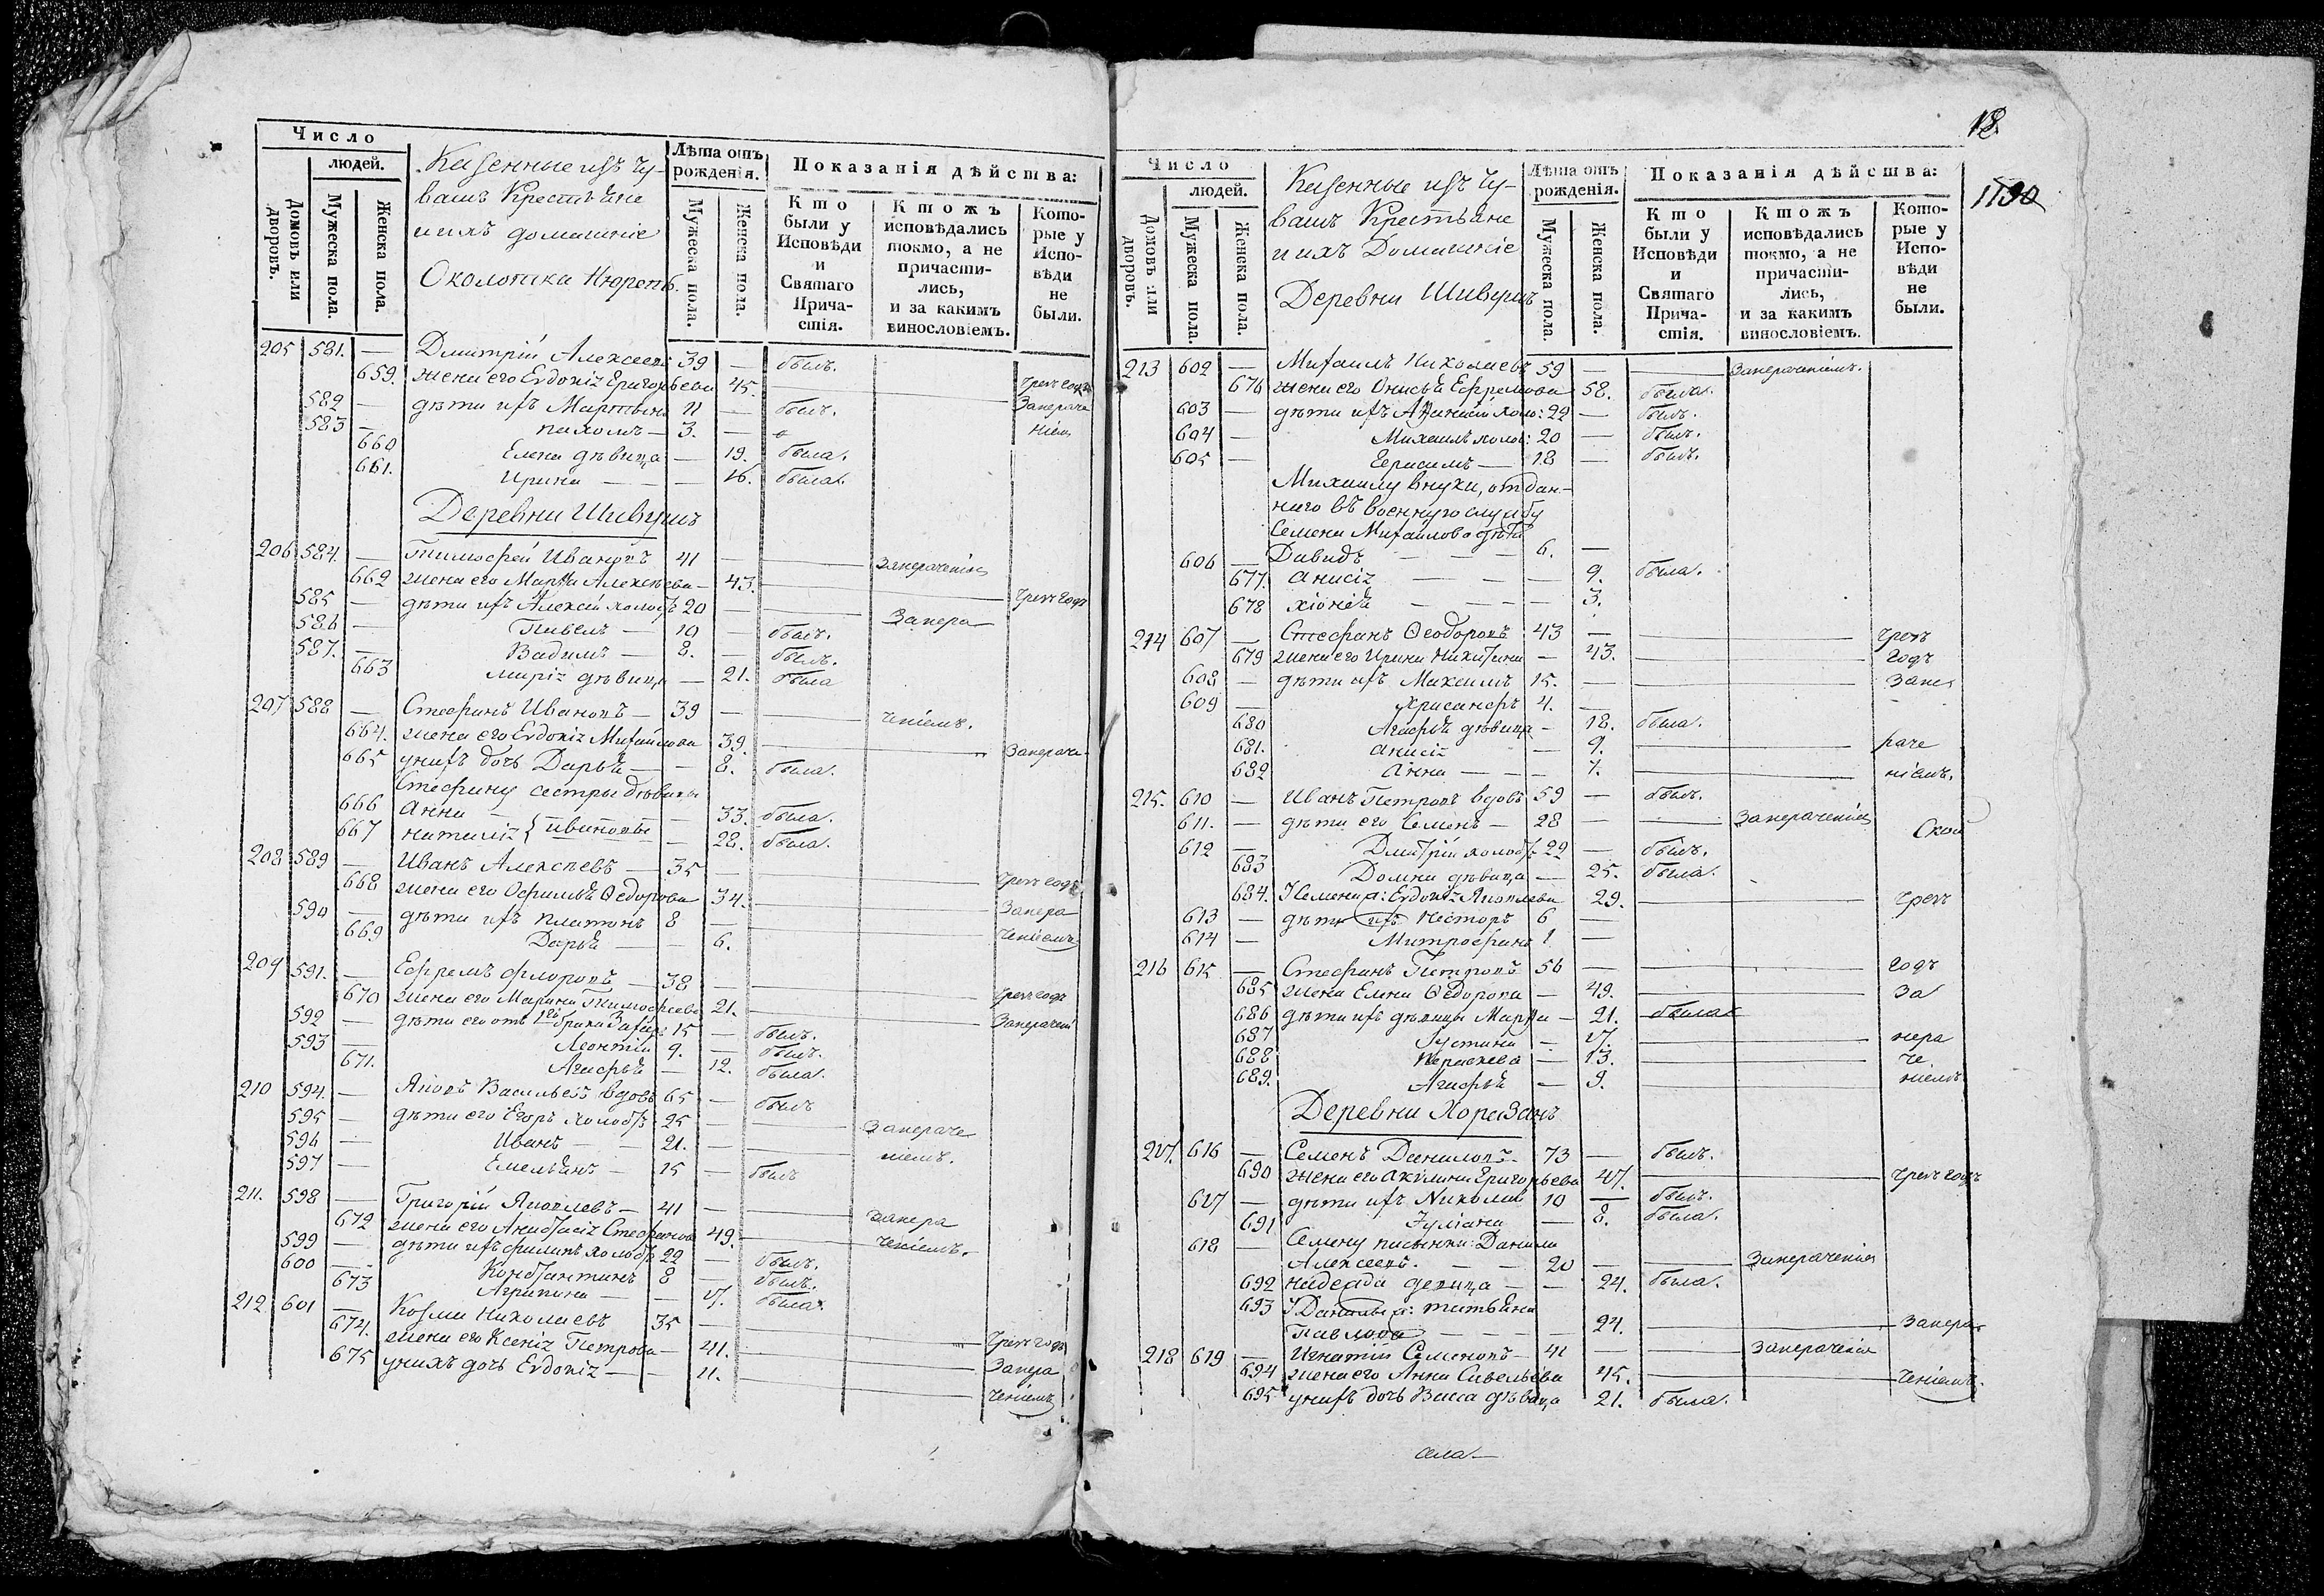 Число
людей.
Домовъ или дворовъ.
Мужеска пола.
Женска пола.
Казенные изъ Чу-
вашъ Крестьяне
и ихъ домашніе
Околотка
Лѣта отъ рожденія.
Мужеска пола.
Женска пола.
Показанія дѣйства:
Кто были у Исповѣди и Святаго Прича-стія.
Ктожъ исповѣдались токмо, а не причасти-лись, и за какимъ винословіемъ.
Кото-рые у Испо-вѣди не были.
205 581. — Дмитрій Алексеевъ 39 — былъ.
659. жена его Евдокія Григорьева 45. чрез годъ
582 — дѣти ихъ Мартынъ 11 — былъ. Занераче
583 — Пахомъ — 3. — ніем
660 Елена дѣвица — 19. была.
661. Ирина — — 16. была.
Деревни Шивушъ
206 584. — Тимофей Ивановъ 41 — занераченіем
662 жена его Марѳа Алексѣева — 43. чрез годъ
585 — дѣти ихъ Алексѣй холос 20 — Занера
586 — Павелъ — 19 — былъ.
587. — Вадимъ — 8. — былъ.
663 Марія дѣвица — 21. была
207 588 — Стефанъ Ивановъ — 39 — ченіемъ.
664. жена его Евдокія Михайлова 39. Занераче
665 у нихъ дочь Дарья — — 8. была.
Стефану сестры дѣвицы
666 Анна — — 33. была.
667 Наталія Ивановы — 28. была.
208 589 — Иванъ Алексѣевъ — 35 — чрез годъ
668 жена его Офимья Ѳедорова 34. Занера
590 — дѣти ихъ Платонъ 8 — ченіемъ
669 Дарья — — 6.
209 591. — Ефремъ Флоровъ — 38 — чрез годъ
670 жена его Марина Тимофеева 21. Занерачені
592 — дѣти его отъ 1го брака Захаръ 15 — былъ.
593 — Леонтій 9. — былъ.
671. Агафья — 12. была.
210 594. — Яковъ Васильевъ вдовъ 65 — былъ
595 — дѣти его Егоръ холос 25 — Занераче
596 — Иванъ — — 21. — ніемъ.
597 — Емельянъ — 15 — былъ
211. 598 — Григорій Яковлевъ — 41 — занера
672 жена его Анастасія Стефанова 49. ченіемъ.
599 — дѣти ихъ Филипъ холос 22 — былъ.
600 — Константинъ 8 — былъ.
673 Агрипина — — 17. была.
212 601 — Козма Николаевъ 35 — чрез годъ
674. жена его Ксенія Петрова — 41. Занера
675 у нихъ дочь Евдокія — — 11. ченіемъ
18
1190
Число
людей.
Домовъ или дворовъ.
Мужеска пола.
Женска пола.
Казенные изъ Чу-
вашъ Крестьяне
и ихъ Домашніе
Деревни Шивушъ
Лѣта отъ рожденія.
Мужеска пола.
Женска пола.
Показанія дѣйства:
Кто были у Исповѣди и Святаго Прича-стія.
Ктожъ исповѣдались токмо, а не причасти-лись, и за какимъ винословіемъ.
Кото-рые у Испо-вѣди не были.
213 602 — Михаилъ Николаевъ 59 — Занераченіемъ.
676 жена его Онисья Ефремова 58. была.
603 — дѣти ихъ холо: 22 — былъ.
604 — Михаилъ холос: 20 — былъ.
605 — Герасимъ — 18 — былъ.
Михаилу внуки, отдан-
наго въ военную службу
Семена Михайлова дѣти
606 — Давидъ — — — 6. —
677. Анисія — — — 9. была.
678 Хіонія — — — 3.
214 607 — Стефанъ Ѳеодоровъ 43 — чрезъ
679 жена его Ирина Никитина — 43. годъ
608 — дѣти ихъ Максимъ 15. — зане
609 — Хрисанфъ 4. —
680 Агафья дѣвица — 18. была.
681. Анисія — 9. раче
682 Анна — — — 7. ніемъ.
215. 610 — Иванъ Петровъ вдовъ 59 — былъ.
611. — дѣти его Семенъ — 28 — Занераченіем
612 — Дмитрій холос 22 — былъ.
683 Домна дѣвица — 25. была.
684. У Семена ж: Евдокія Яковлева 29. чрез
613 — дѣти ихъ Несторъ 6 —
614 — Митрофанъ 1 —
216 615 — Стефанъ Петровъ 56 — годъ
685 жена Елена Ѳедорова — 49. За
686 дѣти ихъ дѣвицы Марѳа — 21. была
687 Іустина — 17. нера
688 Параскева — 13. че
689. Агафья — 9. ніемъ
Деревни Хоразанъ
217. 616 — Семенъ Даниловъ — 73 — былъ.
690 жена его Акилина Григорьева 47. чрез годъ
617 — дѣти ихъ Николай 10 — былъ.
691 Іуліана — 8. была.
618 — Семену пасынки: Данила
Алексеевъ. — — 20 — Занераченіем
692 Надежда девица — — 24. была.
693 У Данилы ж: Татьяна
Павлова — — — 24. занера
218 619 — Игнатій Семеновъ — 41 — занераченіем
694 жена его Анна Савельева 45. ченіемъ.
695 у нихъ дочь Васса дѣвица 21. была.
села